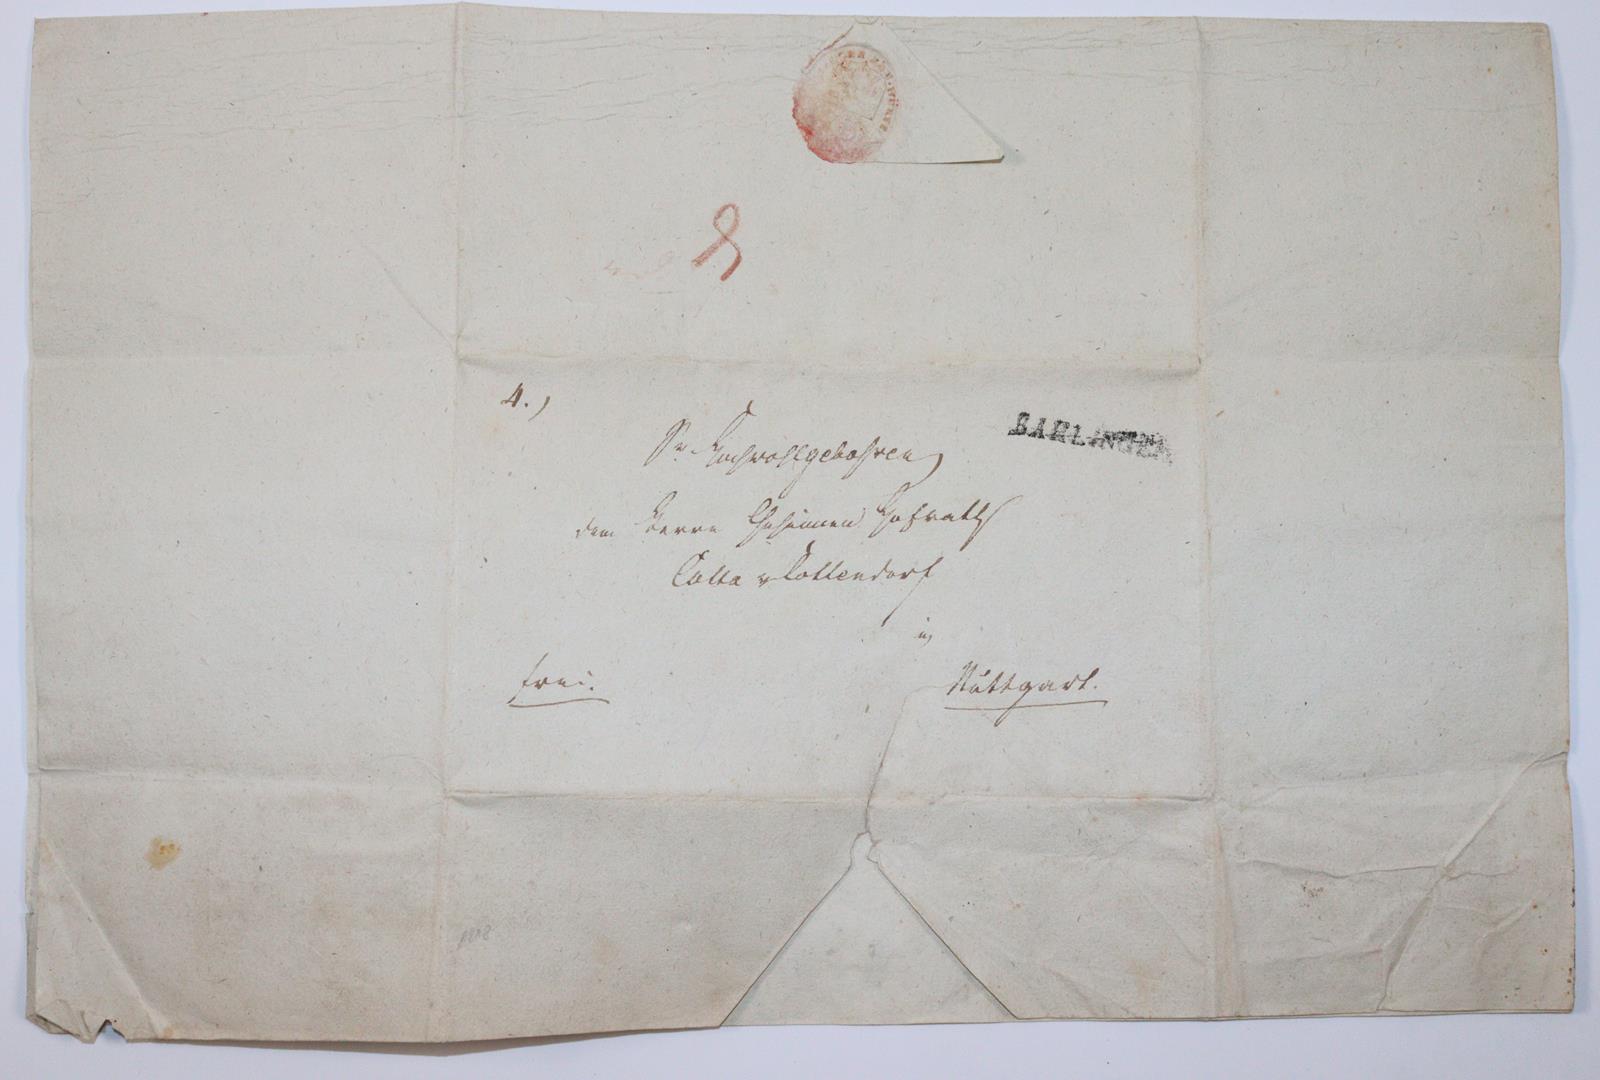 4.)
BAHLINGEN
Sr Hochwohlgebohren
dem Herrn Geheimen Hofrath
Cotta v Cottendorf
in
frei.
Stuttgart.
1818